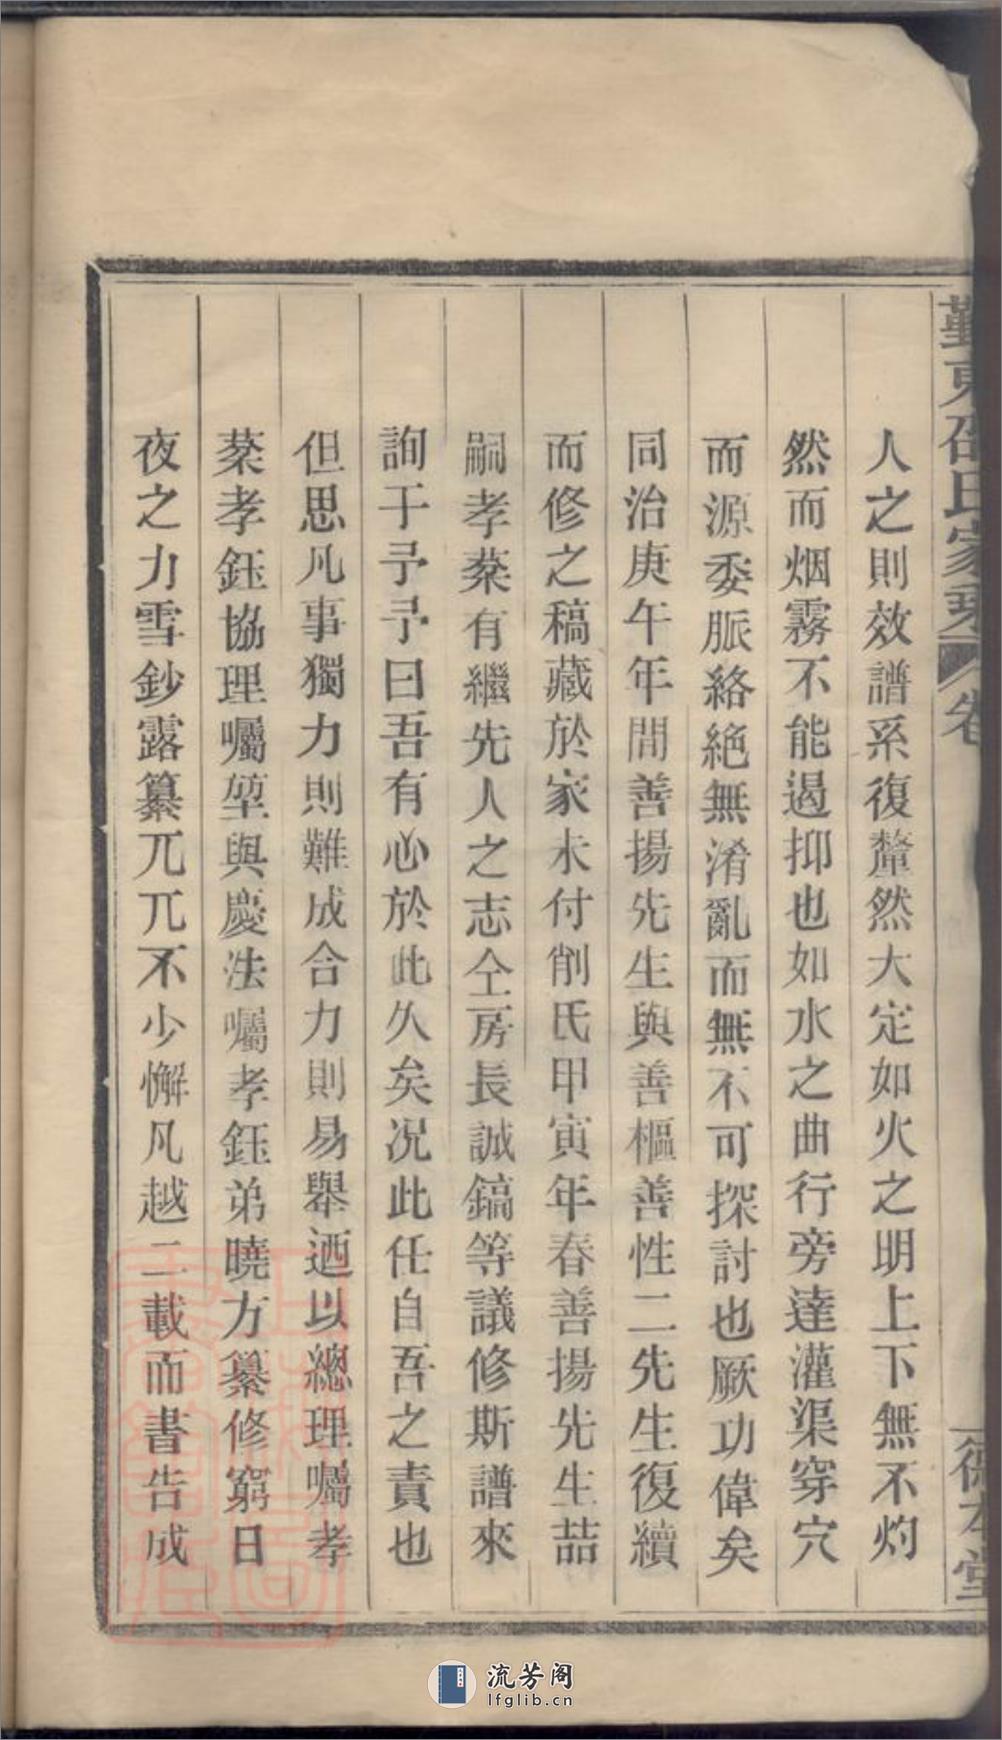 東邵氏家乘 卷
德本堂
人之則效譜系復釐然大定如火之明上下無不灼
然而烟霧不能遏抑也如水之曲行旁達灌渠穿穴
而源委脈絡絕無淆亂而無不可探討也厥功偉矣
同治庚午年間善揚先生與善樞善性二先生復續
而修之稿藏於家未付削氏甲寅年春善揚先生喆
嗣孝棻有繼先人之志仝房長誠鎬等議修斯譜來
詢于予予曰吾有心於此久矣況此任自吾之責也
但思凡事獨力則難成合力則易舉迺以總理囑孝
棻孝鈺協理囑堃與慶法囑孝鈺弟曉方纂修窮日
夜之力雪鈔露纂兀兀不少懈凡越二載而書告成
流芳阁
lfglib.cn